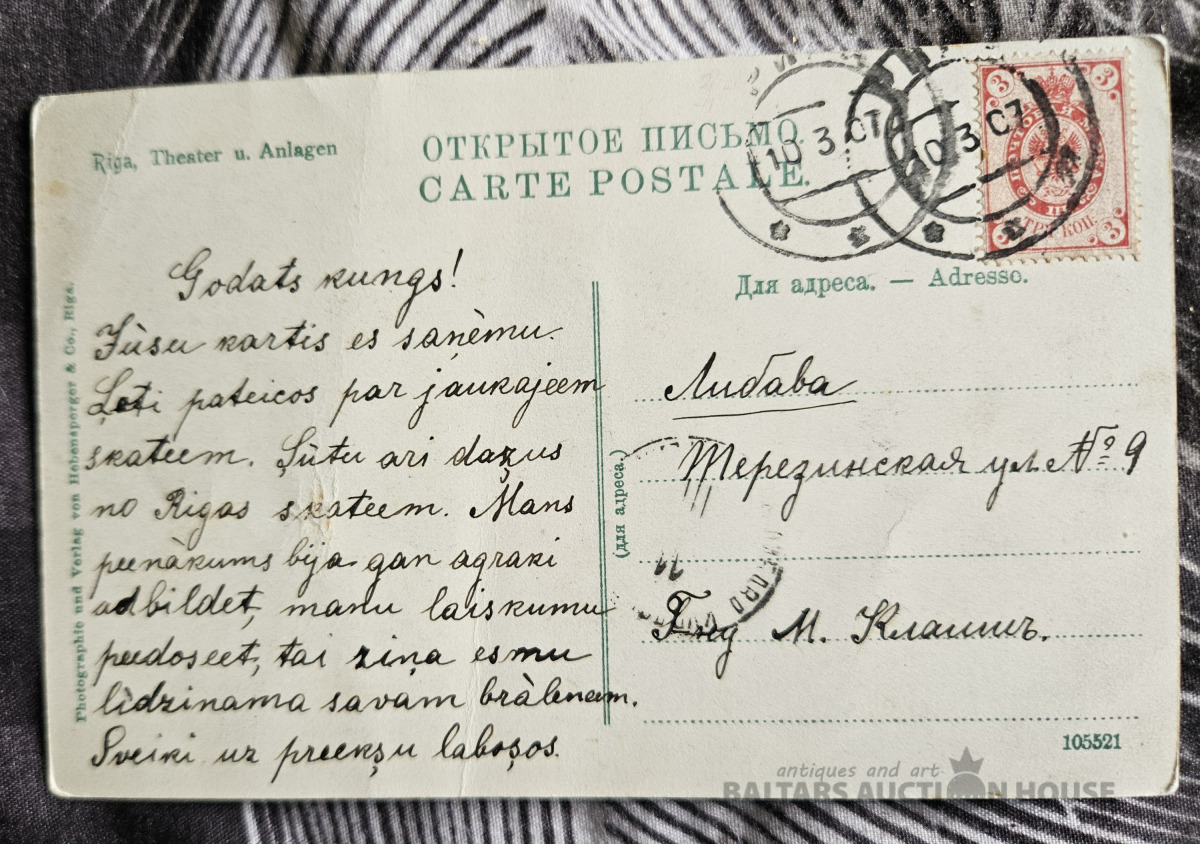 Riga, Theater u. Anlagen
ОТКРЫТОЕ ПИСЬМО.
CARTE POSTALE.
10 3 07
10 3 07
3 3
ТРИ КОП.
3 3
Для адреса. — Adresse.
Godats kungs!
Jūsu kartis es saņēmu.
Ļoti pateicos par jaukajeem
skateem. Sūtu ari dažus
no Rigas skateem. Mans
peenākums bija gan agraki
adbildet, manu laiskumu
peedoseet, tai ziņa esmu
līdzinama savam brālenam.
Sveiki uz preekşu laboşos.
Либава
Терезинская ул. № 9
Гну М. Клаишъ.
(для адреса.)
Photographie und Verlag von Hebensperger & Co., Riga.
105521
antiques and art
BALTARS AUCTION HOUSE